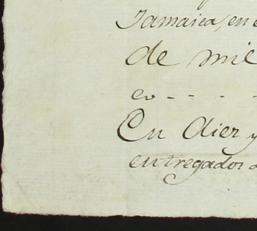 Jamaica, en e
de mil
eo - - - -
En diez y
entregados a